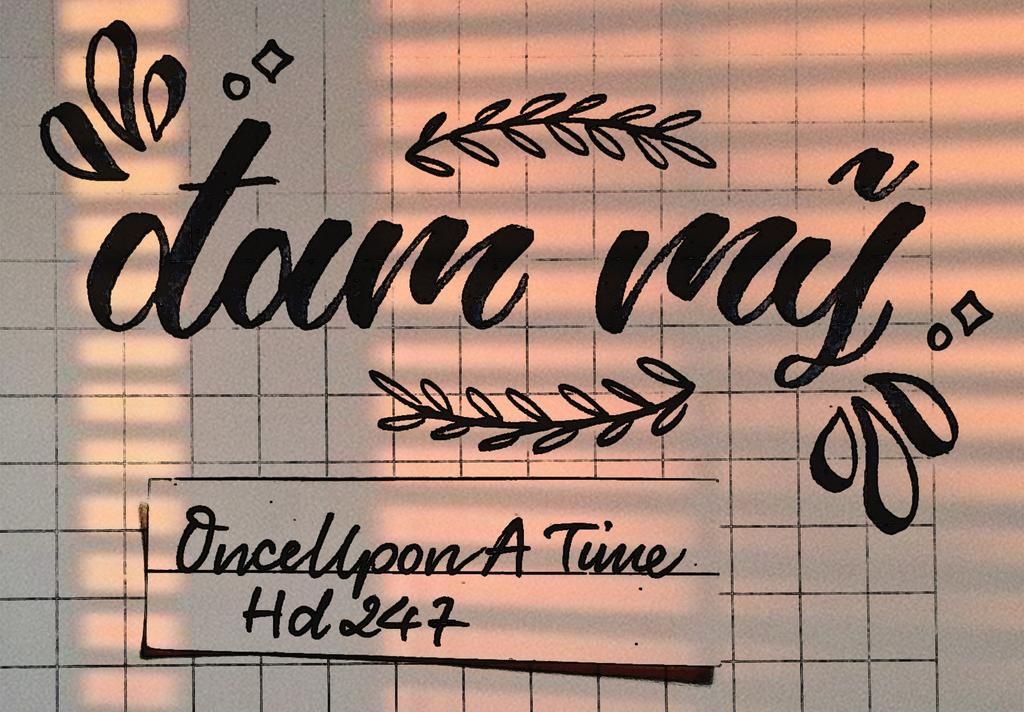 đam mỹ
OnceUpon A Time
Hd 247